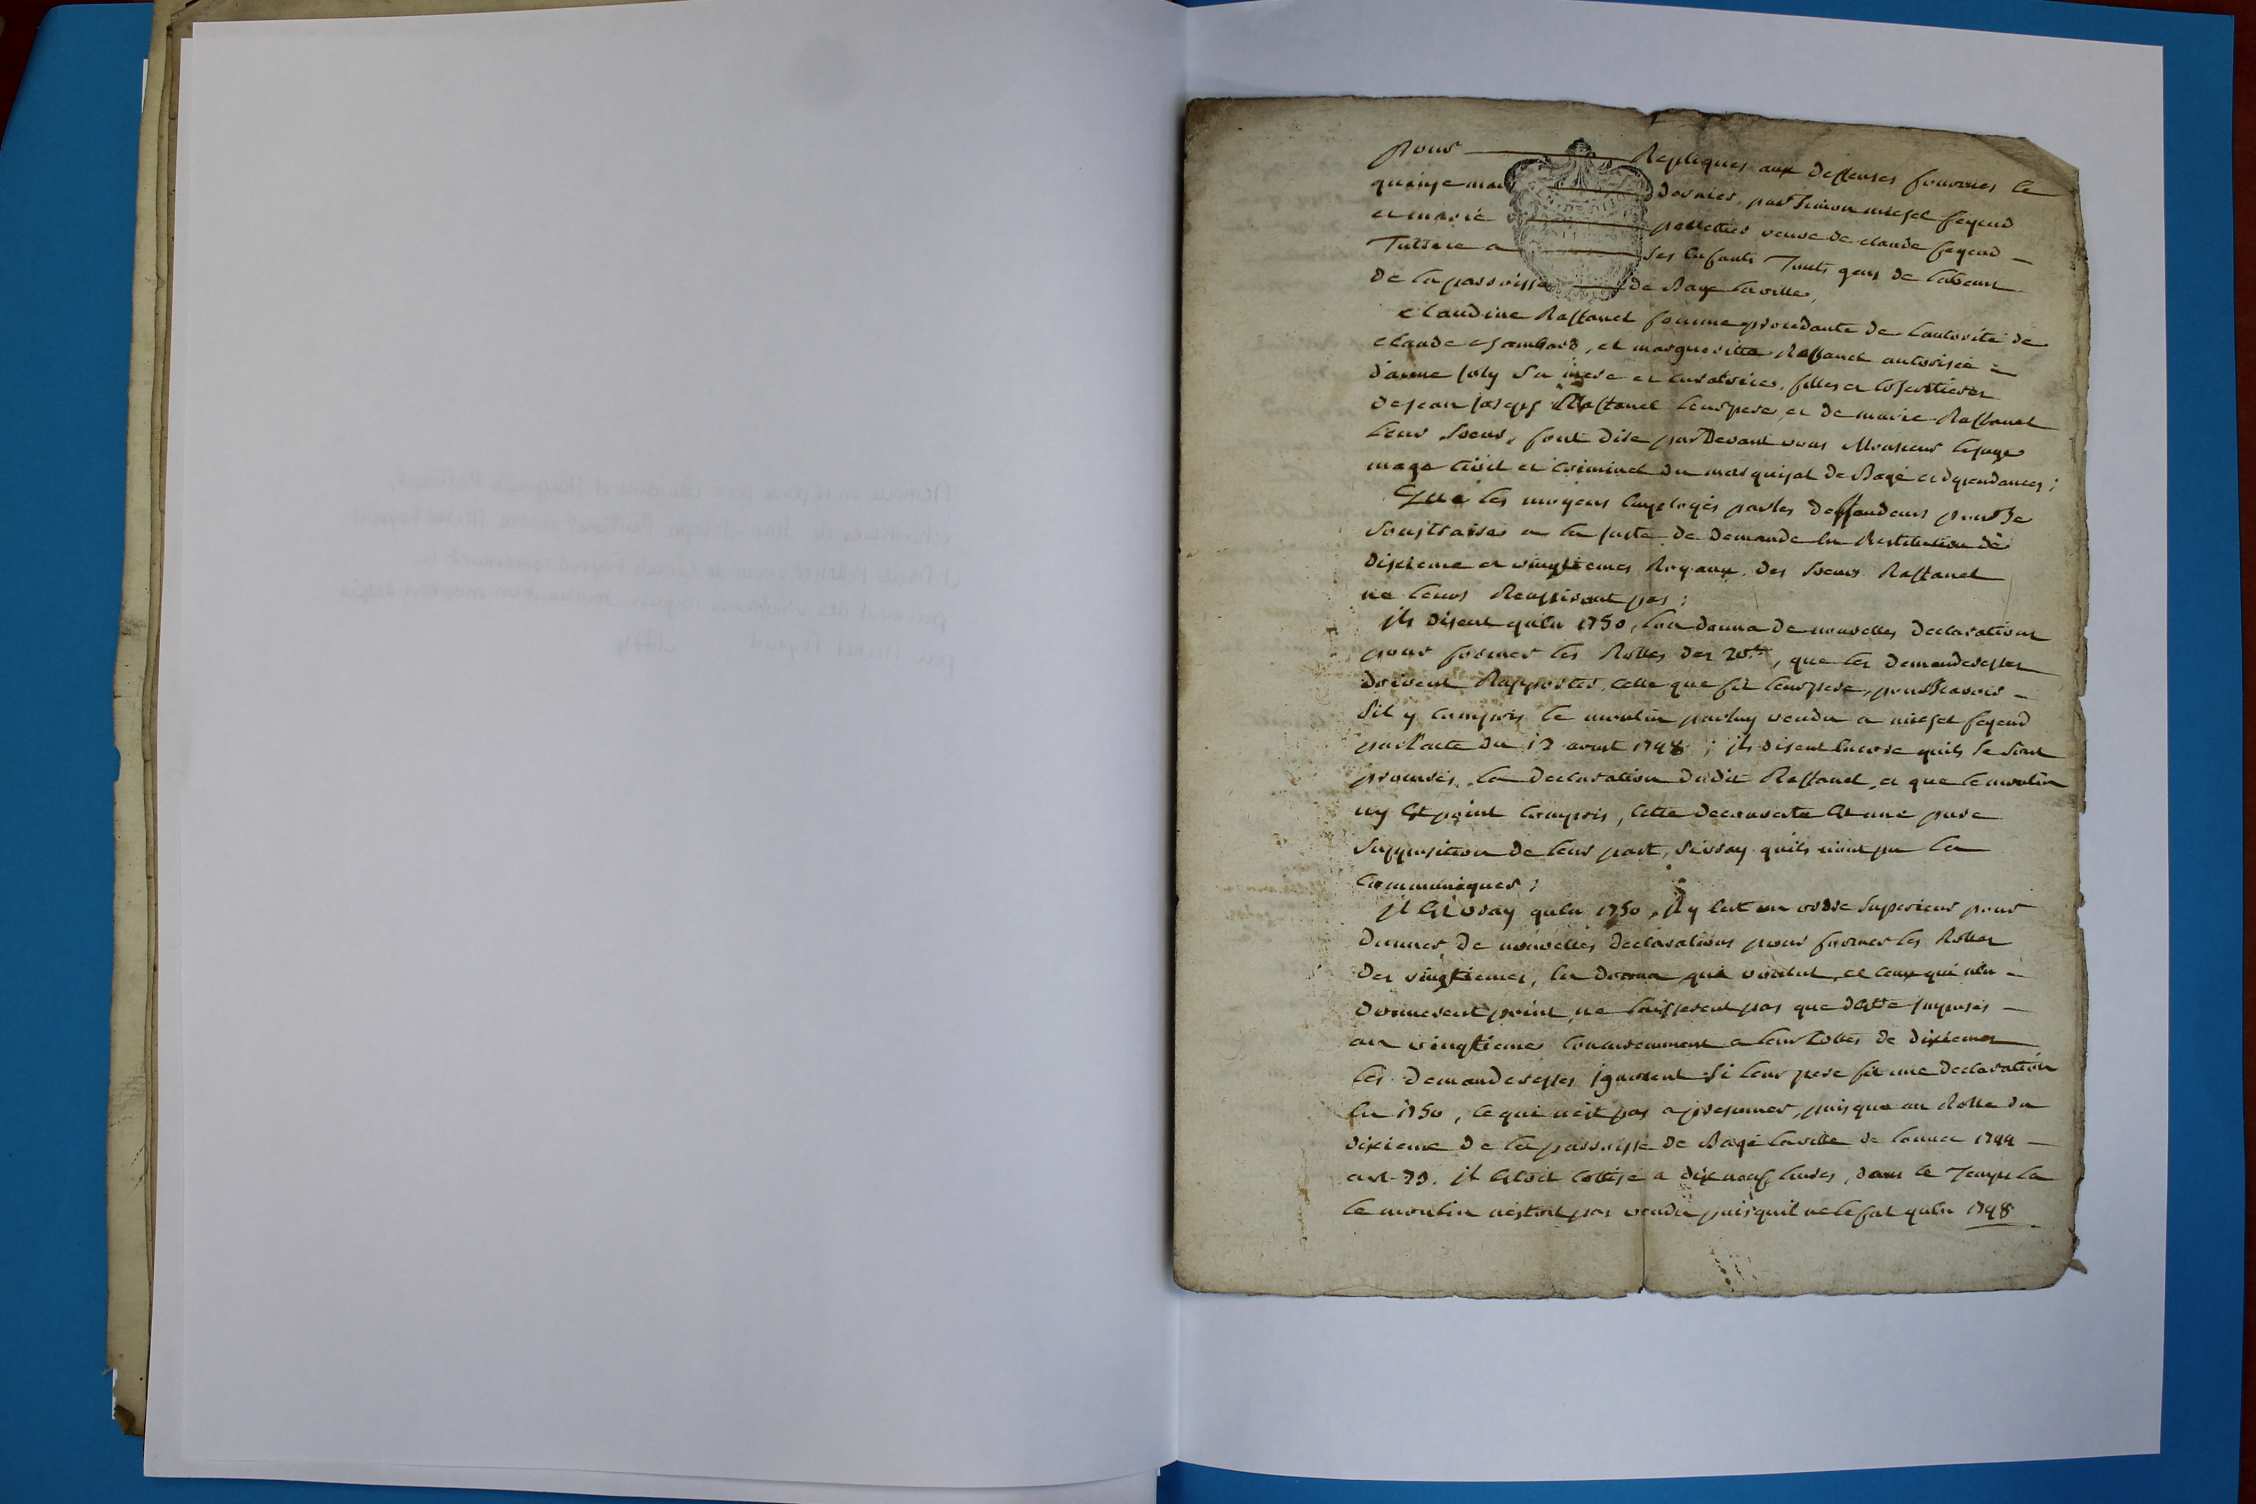 pour Repliques aux deffenses fournies le
quinze mars dernier, par Simon michel feyeud
et marie pelletier veuve de claude feyeud
Tutrice a ses Enfants Touts gens de labeur
de la parroisse de Bagé laville,
claudine Raffanel femme procedante de lautorité de
claude chambard, et margueritte Raffanel autorisée
d'anne joly sa mere et curatrice, filles et cohéritieres
de jean joseph Raffanel leur pere, et de marie Raffanel
leur soeur, font dire par devant vous Monsieur le juge
mage civil et criminel du marquisat de Bagé et dépendances;
Que les moyens employés par les deffendeurs pour se
soustraire a la juste de demande En Restitution de
dixieme et vingtiemes Royaux, des soeurs Raffanel
ne leurs Reussiront pas;
jls disent qu'En 1750, lon donna de nouvelles declarations
pour former les Rolles des 20es, que les demanderesses
doivent Rapporter celle que fit leur pere, pour scavoir
s'il y comprit le moulin par luy vendu a michel feyeud
par l'acte du 12 aoust 1748; jls disent Encore quils se sont
procurés la declaration dudit Raffanel, et que le moulin
ny Est point compris, cette decouverte Est une pure
supposition de leur part, si vray quils n'ont pu la
communiquer;
jl Est vray quEn 1750, jl y Eut un ordre superieur pour
donner de nouvelles declarations pour former les Rolles
des vingtiemes, En donna qui voulut, et ceux qui nEn
donnerent point, ne laisserent pas que dEstre jmposés
au vingtieme conformement a leur Cottes de dixiemes
les demanderesses jgnorent si leur pere fit une declaration
En 1750, ce qui nest pas a presumer, puisque au Rolle du
dixieme de la parroisse de Bagé laville de lannée 1744
art. 79. jl Estoit cottisé a dix neuf livres, dans le Temps la
le moulin nestoit pas vendu puisquil ne le fut quEn 1748